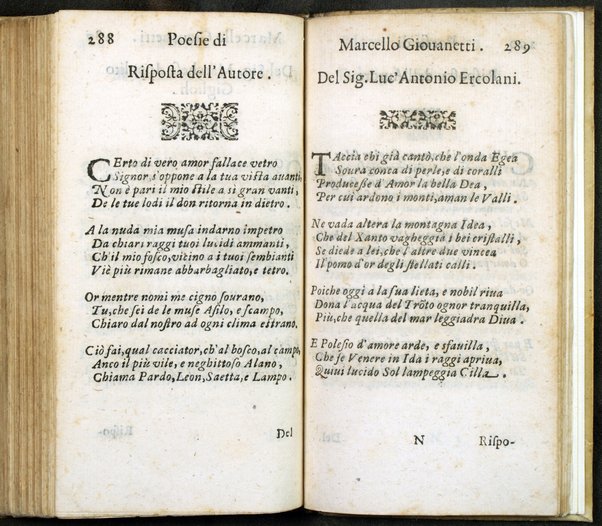 288 Poeſie di
Riſpoſta dell'Autore.
CErto di vero amor fallace vetro
Signor, s'oppone a la tua viſta auanti,
Non è pari il mio ſtile a sì gran vanti,
De le tue lodi il don ritorna in dietro.
A la nuda mia muſa indarno impetro
Da chiari raggi tuoi lucidi ammanti,
Ch'il mio foſco, vicino a i tuoi ſembianti
Viè più rimane abbarbagliato, e tetro.
Or mentre nomi me cigno ſourano,
Tu, che ſei de le muſe Aſilo, e ſcampo,
Chiaro dal noſtro ad ogni clima eſtrano.
Ciò fai, qual cacciator, ch'al boſco, al campo,
Anco il più vile, e neghittoſo Alano,
Chiama Pardo, Leon, Saetta, e Lampo.
Del
Marcello Giouanetti. 289
Del Sig. Luc'Antonio Ercolani.
TAccia chi già cantò, che l'onda Egea
Soura conca di perle, e di coralli
Produceſſe d'Amor la bella Dea,
Per cui ardono i monti, aman le Valli.
Ne vada altera la montagna Idea,
Che del Xanto vagheggia i bei criſtalli,
Se diede a lei, che l'altre due vincea
Il pomo d'or degli ſtellati calli.
Poiche oggi a la ſua lieta, e nobil riua
Dona l'acqua del Trõto ognor tranquilla,
Più, che quella del mar leggiadra Diua.
E Poleſio d'amore arde, e sfauilla,
Che ſe Venere in Ida i raggi apriua,
Quiui lucido Sol lampeggia Cilla.
N Riſpo-